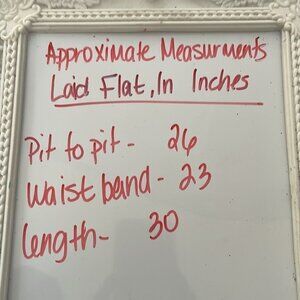 Approximate Measurments
Laid Flat, In Inches
Pit to pit - 26
Waist band - 23
length - 30